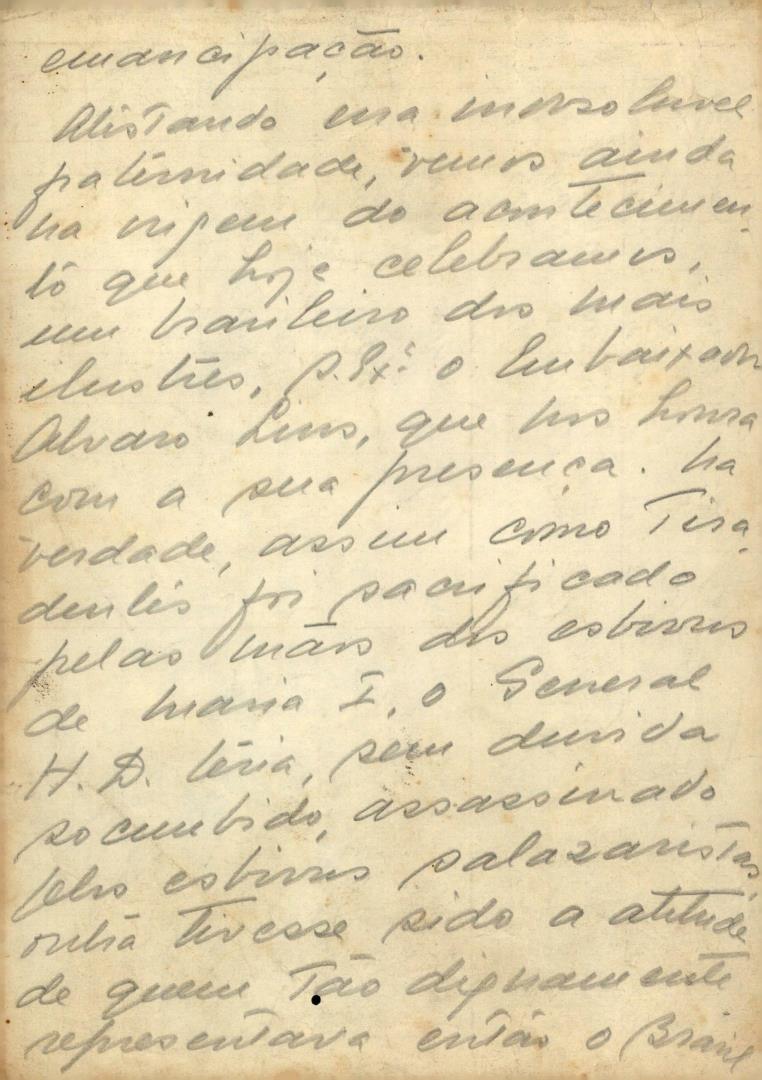 emancipação.
Atestando essa indissoluvel
fraternidade, vemos ainda
na origem do acontecimen-
to que hoje celebramos,
um brasileiro dos mais
ilustres, S. Exª. o Embaixador
Alvaro Lins, que nos honra
com a sua presença. Na
verdade, assim como Tira-
dentes foi sacrificado
pelas mãos dos esbirros
de Maria I, o General
H. D. teria, sem duvida
socumbido, assassinado
pelos esbirros salazaristas,
outra tivesse sido a atitude
de quem tão dignamente
representava então o Brasil